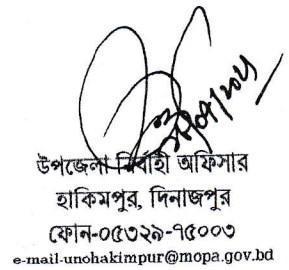 উপজেলা নির্বাহী অফিসার
হাকিমপুর, দিনাজপুর
ফোন-০৫৩২৯-৭৫০০৩
e-mail-unohakimpur@mopa.gov.bd